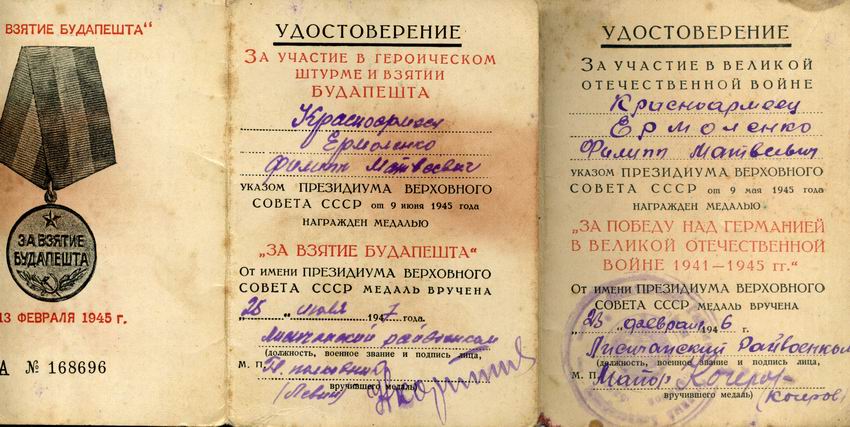 ВЗЯТИЕ БУДАПЕШТА"
ЗА ВЗЯТИЕ
БУДАПЕШТА
13 ФЕВРАЛЯ 1945 г.
А № 168696
УДОСТОВЕРЕНИЕ
ЗА УЧАСТИЕ В ГЕРОИЧЕСКОМ
ШТУРМЕ И ВЗЯТИИ
БУДАПЕШТА
Красноармеец
Ермоленко
Филипп Матвеевич
УКАЗОМ ПРЕЗИДИУМА ВЕРХОВНОГО
СОВЕТА СССР от 9 июня 1945 года
НАГРАЖДЕН МЕДАЛЬЮ
„ЗА ВЗЯТИЕ БУДАПЕШТА"
От имени ПРЕЗИДИУМА ВЕРХОВНОГО
СОВЕТА СССР МЕДАЛЬ ВРУЧЕНА
„25" июля 1947 года.
Лисичанский райвоенком
(должность, военное звание и подпись лица,
М. П. полковник
вручившего медаль)
(Левин)
УДОСТОВЕРЕНИЕ
ЗА УЧАСТИЕ В ВЕЛИКОЙ
ОТЕЧЕСТВЕННОЙ ВОЙНЕ
Красноармеец
Ермоленко
Филипп Матвеевич
УКАЗОМ ПРЕЗИДИУМА ВЕРХОВНОГО
СОВЕТА СССР от 9 мая 1945 года
НАГРАЖДЕН МЕДАЛЬЮ
„ЗА ПОБЕДУ НАД ГЕРМАНИЕЙ
В ВЕЛИКОЙ ОТЕЧЕСТВЕННОЙ
ВОЙНЕ 1941—1945 гг."
От имени ПРЕЗИДИУМА ВЕРХОВНОГО
СОВЕТА СССР МЕДАЛЬ ВРУЧЕНА
„25" февраля 1946 г.
Лисичанский Райвоенком
(должность, военное звание и подпись лица,
М. П. Майор
вручившего медаль)